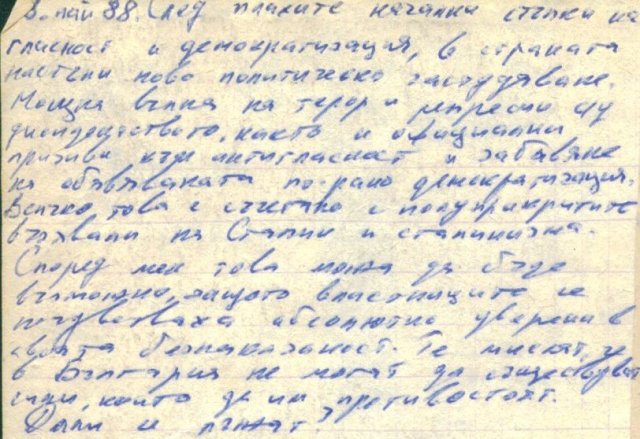 3. май 88. След плахите начални стъпки на
гласност и демократизация, в страната
настъпи ново политическо застудяване.
Мощна вълна на терор и репресии с/у
дисидентството, както и официални
призиви към антигласност и забавяне
на обявяваната по-рано демократизация.
Всичко това е съчетано с полуприкритите
възхвали на Сталин и сталинизма.
Според мен това може да бъде
възможно, защото властниците се
почувстваха абсолютно уверени в
своята безнаказаност. Те мислят, че
в България не могат да съществуват
сили, които да им противостоят.
Дали се лъжат?